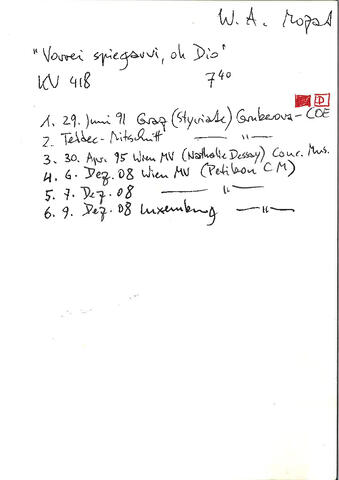 W. A. Mozart
"Vorrei spiegarvi, oh Dio"
KV 418 7'40
D
1. 29. Juni 91 Graz (Styriarte) Gruberova - COE
2. Teldec - Mitschnitt —— " ——
3. 30. Apr. 95 Wien MV (Nathalie Dessay) Conc. Mus.
4. 6. Dez. 08 Wien MV (Petibon CM)
5. 7. Dez. 08 —— " ——
6. 9. Dez. 08 Luxemburg —— " ——